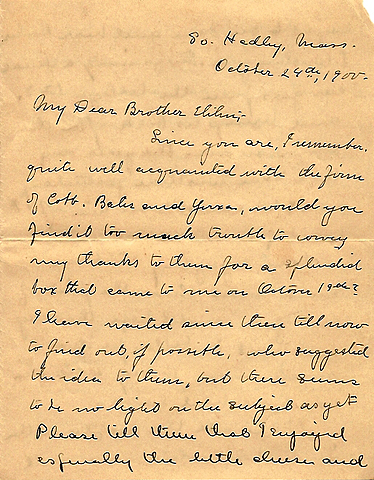 So. Hadley, Mass.
October 24th, 1900.
My Dear Brother Elihu;
Since you are, I remember,
quite well acquainted with the firm
of Cobb. Bates and Yerxa, would you
find it too much trouble to convey
my thanks to them for a splendid
box that came to me on October 19th?
I have waited since then till now
to find out, if possible, who suggested
the idea to them, but there seems
to be no light on the subject as yet
Please tell them that I enjoyed
especially the little cheeses and